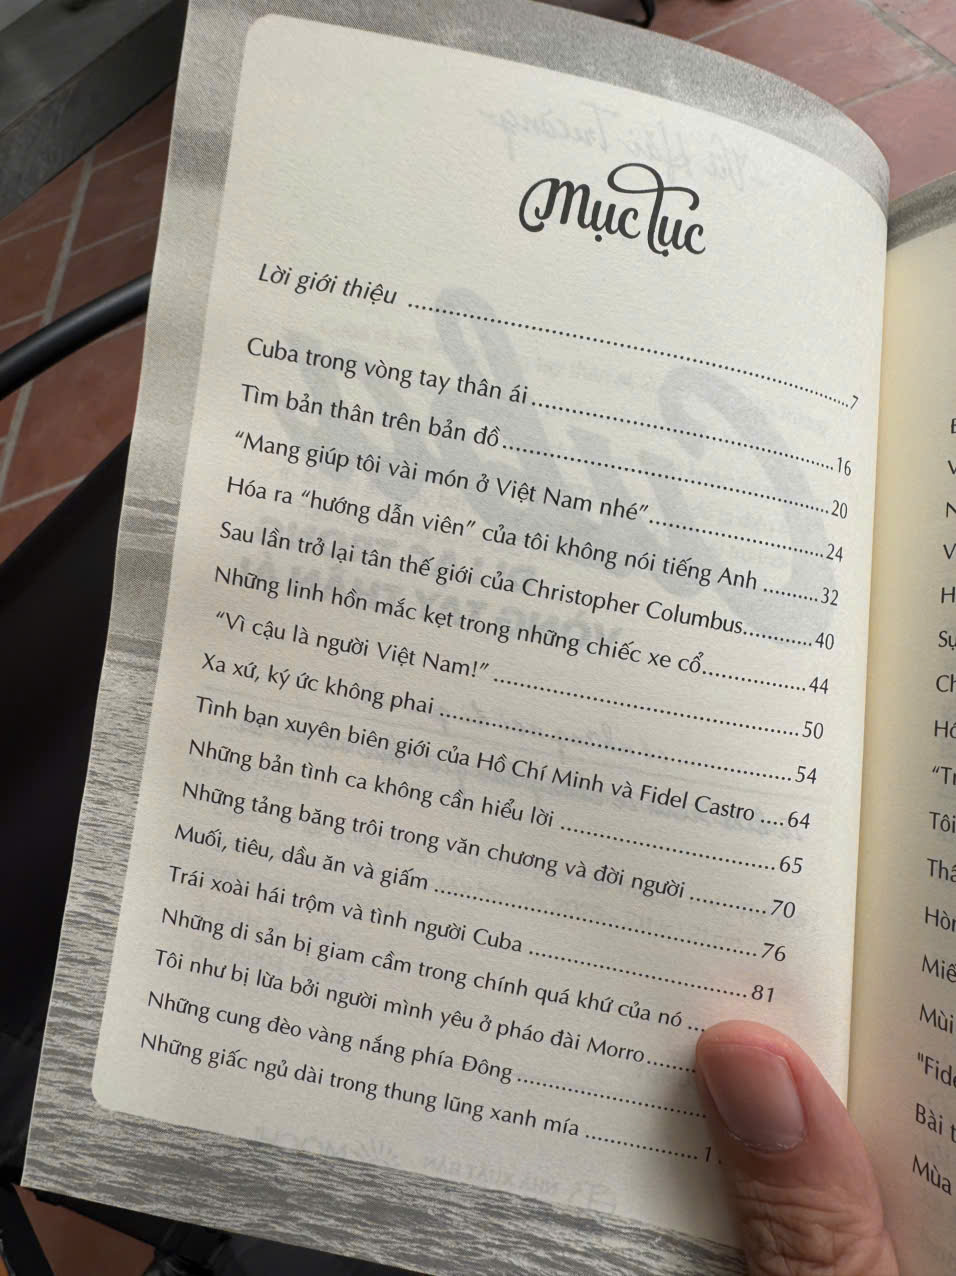 Mục lục
Lời giới thiệu ........ 7
Cuba trong vòng tay thân ái ........ 16
Tìm bản thân trên bản đồ ........ 20
“Mang giúp tôi vài món ở Việt Nam nhé” ........ 24
Hóa ra “hướng dẫn viên” của tôi không nói tiếng Anh ........ 32
Sau lần trở lại tân thế giới của Christopher Columbus ........ 40
Những linh hồn mắc kẹt trong những chiếc xe cổ ........ 44
“Vì cậu là người Việt Nam!” ........ 50
Xa xứ, ký ức không phai ........ 54
Tình bạn xuyên biên giới của Hồ Chí Minh và Fidel Castro .... 64
Những bản tình ca không cần hiểu lời ........ 65
Những tảng băng trôi trong văn chương và đời người ........ 70
Muối, tiêu, dầu ăn và giấm ........ 76
Trái xoài hái trộm và tình người Cuba ........ 81
Những di sản bị giam cầm trong chính quá khứ của nó ...
Tôi như bị lừa bởi người mình yêu ở pháo đài Morro ........
Những cung đèo vàng nắng phía Đông ........
Những giấc ngủ dài trong thung lũng xanh mía ........ 1
V
N
V
H
Sự
Ch
“Tr
Tôi
Hòn
Miế
Mùi
"Fide
Bài t
Mùa